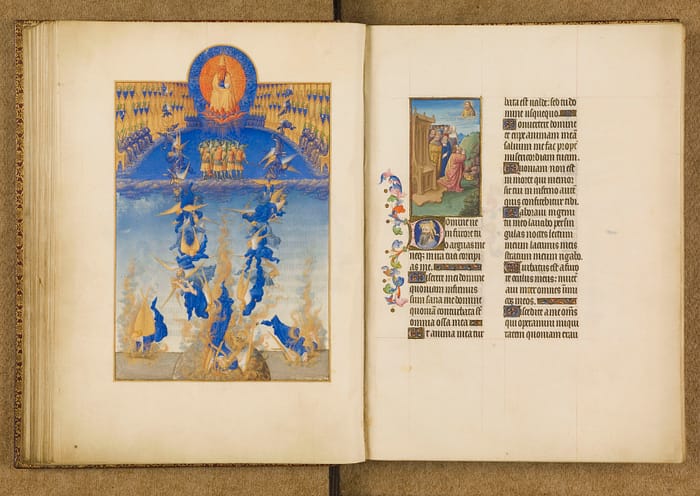 Domine ne
in furore tu
o arguas me
neq; in ira tua corripi
as me.
Miserere mei domine
quoniam infirmus
sum sana me domine
quoniā conturbata sт̄
omnia ossa mea
Et anima mea tur
bata est valde: sed tu do
mine usquequo.
Convertere domine
et eripe animam meā
salvum me fac propт̄
misericordiam tuam.
Quoniam non est
in morte qui memor
sit tui in inferno autē
quis confitebitur tibi.
Laboravi in gemi
tu meo lavabo per sin
gulas noctes lectum
meum lacrimis meis
stratum meum rigabo.
Turbatus est a furo
re oculus meus: inve
inter omnes inimi
cos meos.
Discedite a me om̄s
qui operamini iniqui
tatem quoniam exau